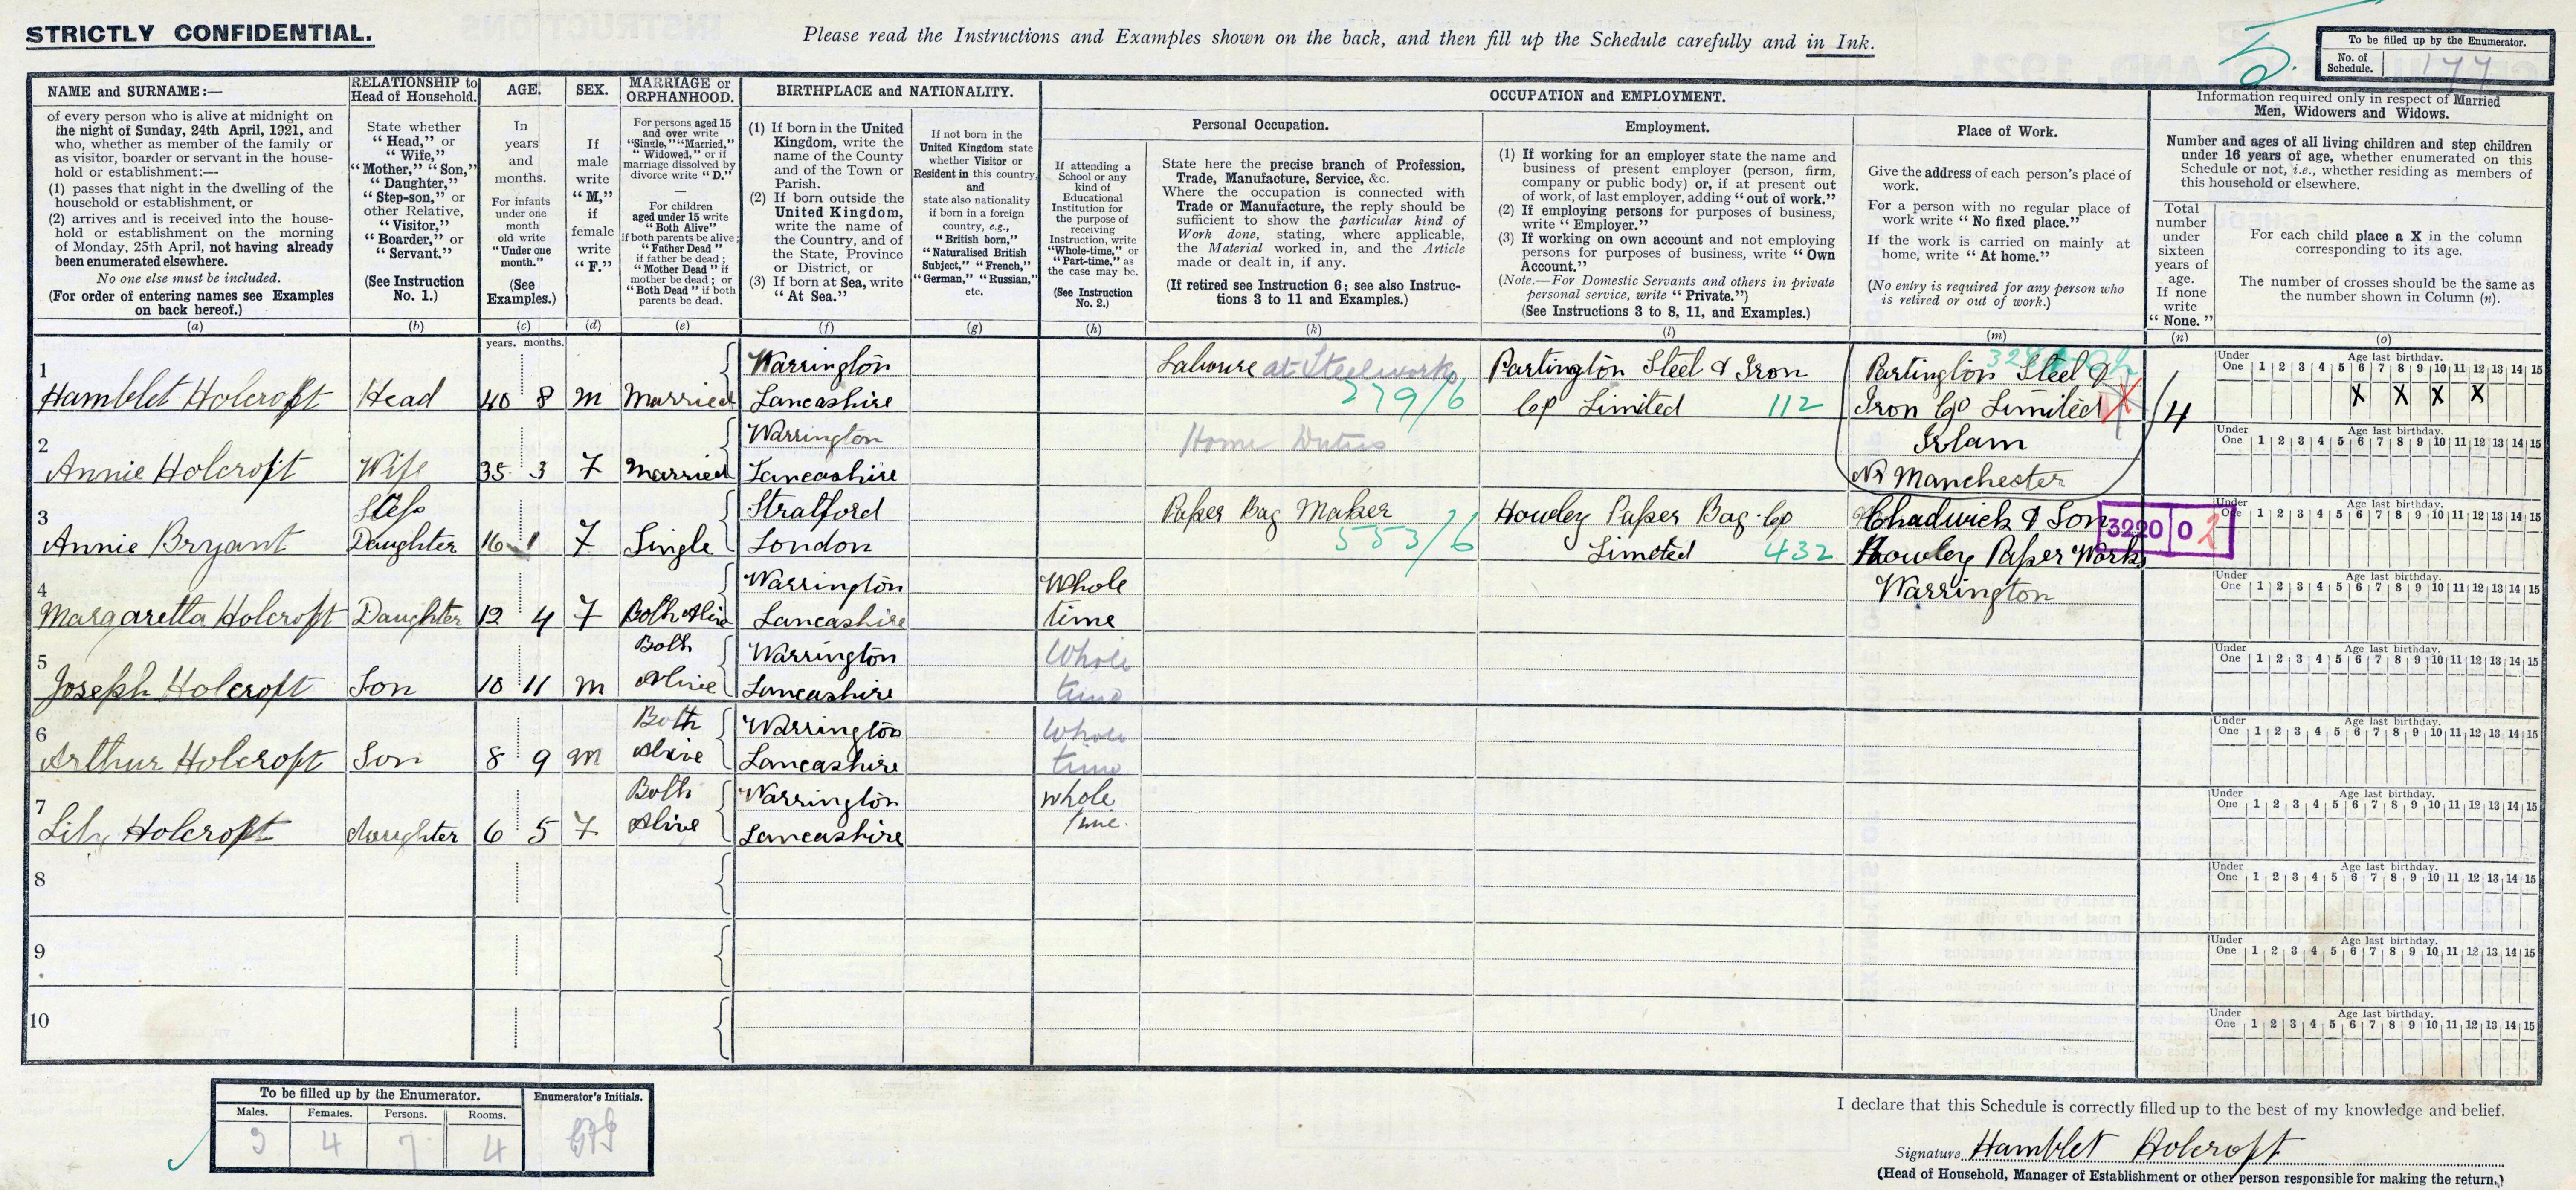 STRICTLY CONFIDENTIAL.
Please read the Instructions and Examples shown on the back, and then fill up the Schedule carefully and in Ink.
To be filled up by the Enumerator.
No. of Schedule. 177
NAME and SURNAME:—
of every person who is alive at midnight on
the night of Sunday, 24th April, 1921, and
who, whether as member of the family or
as visitor, boarder or servant in the house-
hold or establishment:—
(1) passes that night in the dwelling of the
household or establishment, or
(2) arrives and is received into the house-
hold or establishment on the morning
of Monday, 25th April, not having already
been enumerated elsewhere.
No one else must be included.
(For order of entering names see Examples
on back hereof.)
(a)
RELATIONSHIP to
Head of Household.
State whether
"Head," or
"Wife,"
"Mother," "Son,"
"Daughter,"
"Step-son," or
other Relative,
"Visitor,"
"Boarder," or
"Servant."
(See Instruction
No. 1.)
(b)
AGE.
In
years
and
months.
For infants
under one
month
old write
"Under one
month."
(See
Examples.)
(c)
SEX.
If
male
write
"M,"
if
female
write
"F."
(d)
MARRIAGE or
ORPHANHOOD.
For persons aged 15
and over write
"Single," "Married,"
"Widowed," or if
marriage dissolved by
divorce write "D."
—
For children
aged under 15 write
"Both Alive"
if both parents be alive;
"Father Dead"
if father be dead;
"Mother Dead" if
mother be dead; or
"Both Dead" if both
parents be dead.
(e)
BIRTHPLACE and NATIONALITY.
(1) If born in the United
Kingdom, write the
name of the County
and of the Town or
Parish.
(2) If born outside the
United Kingdom,
write the name of
the Country, and of
the State, Province
or District, or
(3) If born at Sea, write
"At Sea."
(f)
If not born in the
United Kingdom state
whether Visitor or
Resident in this country,
and
state also nationality
if born in a foreign
country, e.g.,
"British born,"
"Naturalised British
Subject," "French,"
"German," "Russian,"
etc.
(g)
OCCUPATION and EMPLOYMENT.
If attending a
School or any
kind of
Educational
Institution for
the purpose of
receiving
Instruction, write
"Whole-time," or
"Part-time," as
the case may be.
(See Instruction
No. 2.)
(h)
Personal Occupation.
State here the precise branch of Profession,
Trade, Manufacture, Service, &c.
Where the occupation is connected with
Trade or Manufacture, the reply should be
sufficient to show the particular kind of
Work done, stating, where applicable,
the Material worked in, and the Article
made or dealt in, if any.
(If retired see Instruction 6; see also Instruc-
tions 3 to 11 and Examples.)
(k)
Employment.
(1) If working for an employer state the name and
business of present employer (person, firm,
company or public body) or, if at present out
of work, of last employer, adding "out of work."
(2) If employing persons for purposes of business,
write "Employer."
(3) If working on own account and not employing
persons for purposes of business, write "Own
Account."
(Note.—For Domestic Servants and others in private
personal service, write "Private.")
(See Instructions 3 to 8, 11, and Examples.)
(l)
Place of Work.
Give the address of each person's place of
work.
For a person with no regular place of
work write "No fixed place."
If the work is carried on mainly at
home, write "At home."
(No entry is required for any person who
is retired or out of work.)
(m)
Information required only in respect of Married
Men, Widowers and Widows.
Number and ages of all living children and step children
under 16 years of age, whether enumerated on this
Schedule or not, i.e., whether residing as members of
this household or elsewhere.
Total
number
under
sixteen
years of
age.
If none
write
"None."
(n)
For each child place a X in the column
corresponding to its age.
The number of crosses should be the same as
the number shown in Column (n).
(o)
years. months.
1 Hamblet Holcroft Head 40 8 M Married Warrington Lancashire
Laboure at Steelworks 279/6
Partington Steel & Iron
Co Limited 112
Partington Steel &
Iron Co Limited
Irlam
Nr Manchester
4
Under One Age last birthday. 1 2 3 4 5 6 7 8 9 10 11 12 13 14 15
X X X X
2 Annie Holcroft Wife 35 3 F Married Warrington Lancashire
Home Duties
Under One Age last birthday. 1 2 3 4 5 6 7 8 9 10 11 12 13 14 15
3 Annie Bryant Step Daughter 16 1 F Single Stratford London
Paper Bag Maker 553/6
Howley Paper Bag Co
Limited 432
Chadwick & Son
Howley Paper Works
Warrington
3220 0 2
Under One Age last birthday. 1 2 3 4 5 6 7 8 9 10 11 12 13 14 15
4 Margaretta Holcroft Daughter 12 4 F Both Alive Warrington Lancashire Whole time
Under One Age last birthday. 1 2 3 4 5 6 7 8 9 10 11 12 13 14 15
5 Joseph Holcroft Son 10 11 M Both Alive Warrington Lancashire Whole time
Under One Age last birthday. 1 2 3 4 5 6 7 8 9 10 11 12 13 14 15
6 Arthur Holcroft Son 8 9 M Both Alive Warrington Lancashire Whole time
Under One Age last birthday. 1 2 3 4 5 6 7 8 9 10 11 12 13 14 15
7 Lily Holcroft daughter 6 5 F Both Alive Warrington Lancashire whole time.
Under One Age last birthday. 1 2 3 4 5 6 7 8 9 10 11 12 13 14 15
8
Under One Age last birthday. 1 2 3 4 5 6 7 8 9 10 11 12 13 14 15
9
Under One Age last birthday. 1 2 3 4 5 6 7 8 9 10 11 12 13 14 15
10
Under One Age last birthday. 1 2 3 4 5 6 7 8 9 10 11 12 13 14 15
To be filled up by the Enumerator.
Males. Females. Persons. Rooms.
3 4 7 4
Enumerator's Initials.
I declare that this Schedule is correctly filled up to the best of my knowledge and belief.
Signature Hamblet Holcroft
(Head of Household, Manager of Establishment or other person responsible for making the return.)